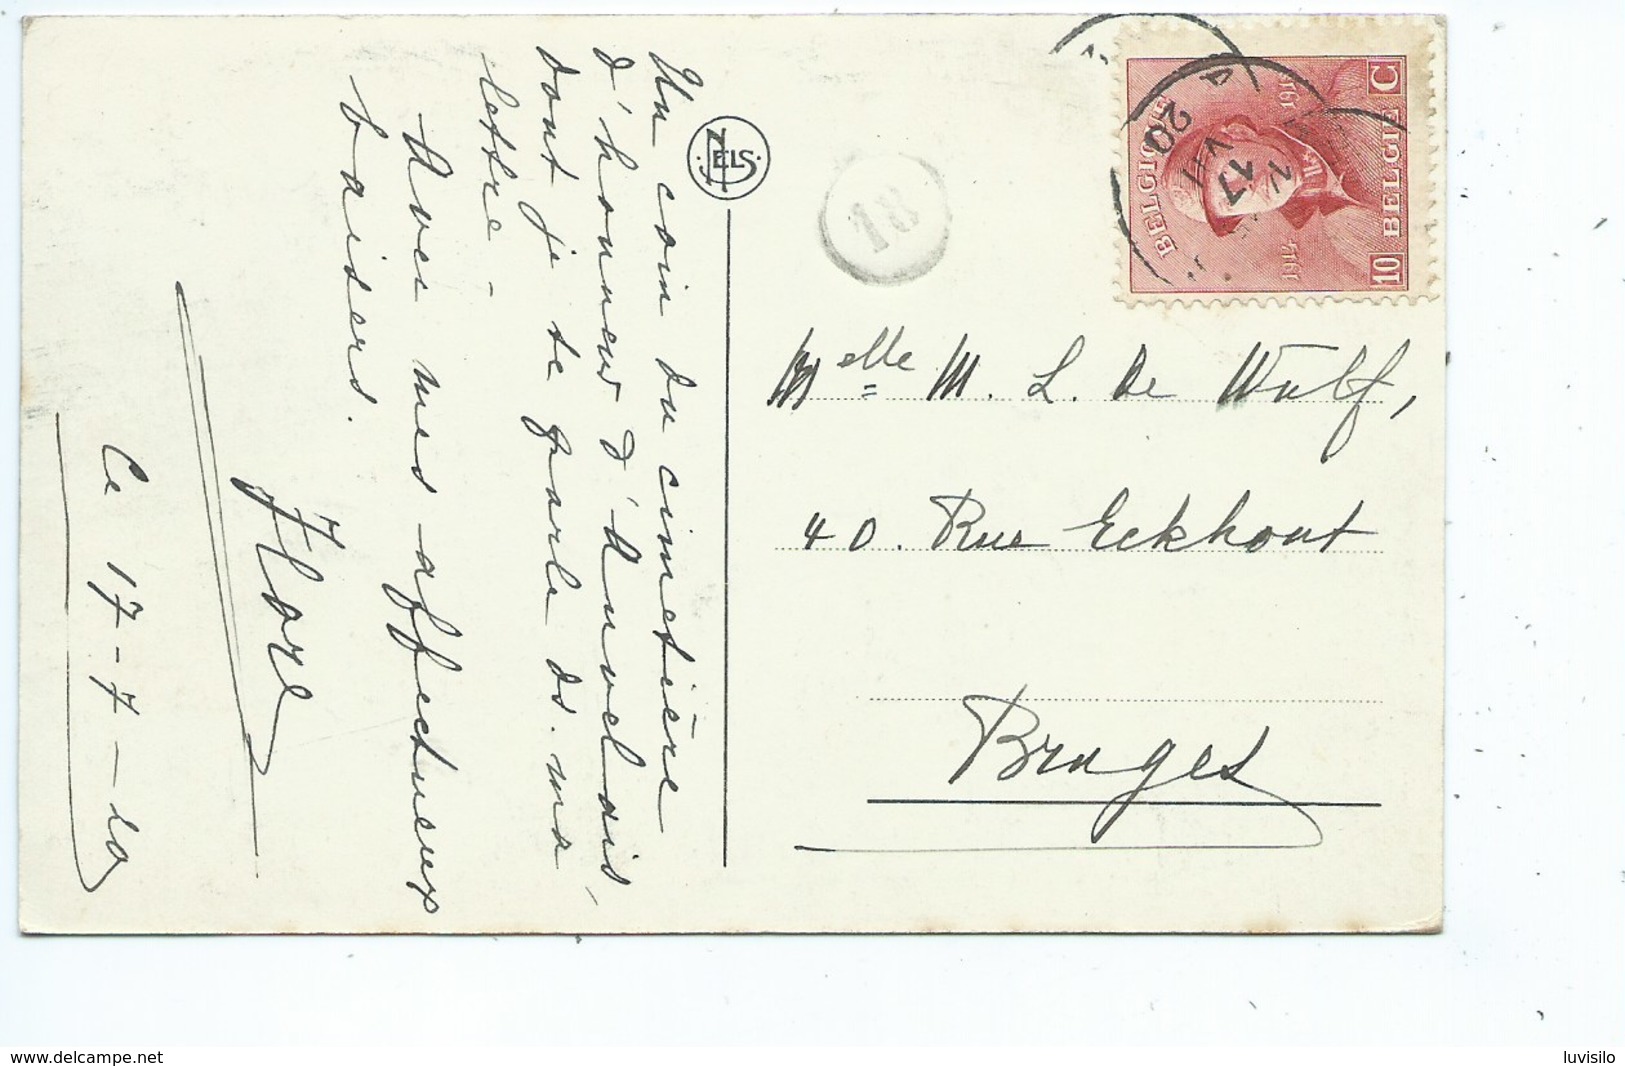 Un coin du cimetière
d'honneur d'Auvelais,
dont je te parle ds. ma
lettre -
Avec mes affectueux
baisers.
Flore
Ce 17-7-20
NELS
18
BELGIQUE
1914
10 BELGIE C
17
VII
20
Melle M. L. De Wulf,
40. Rue Eckhout
Bruges
www.delcampe.net
luvisilo